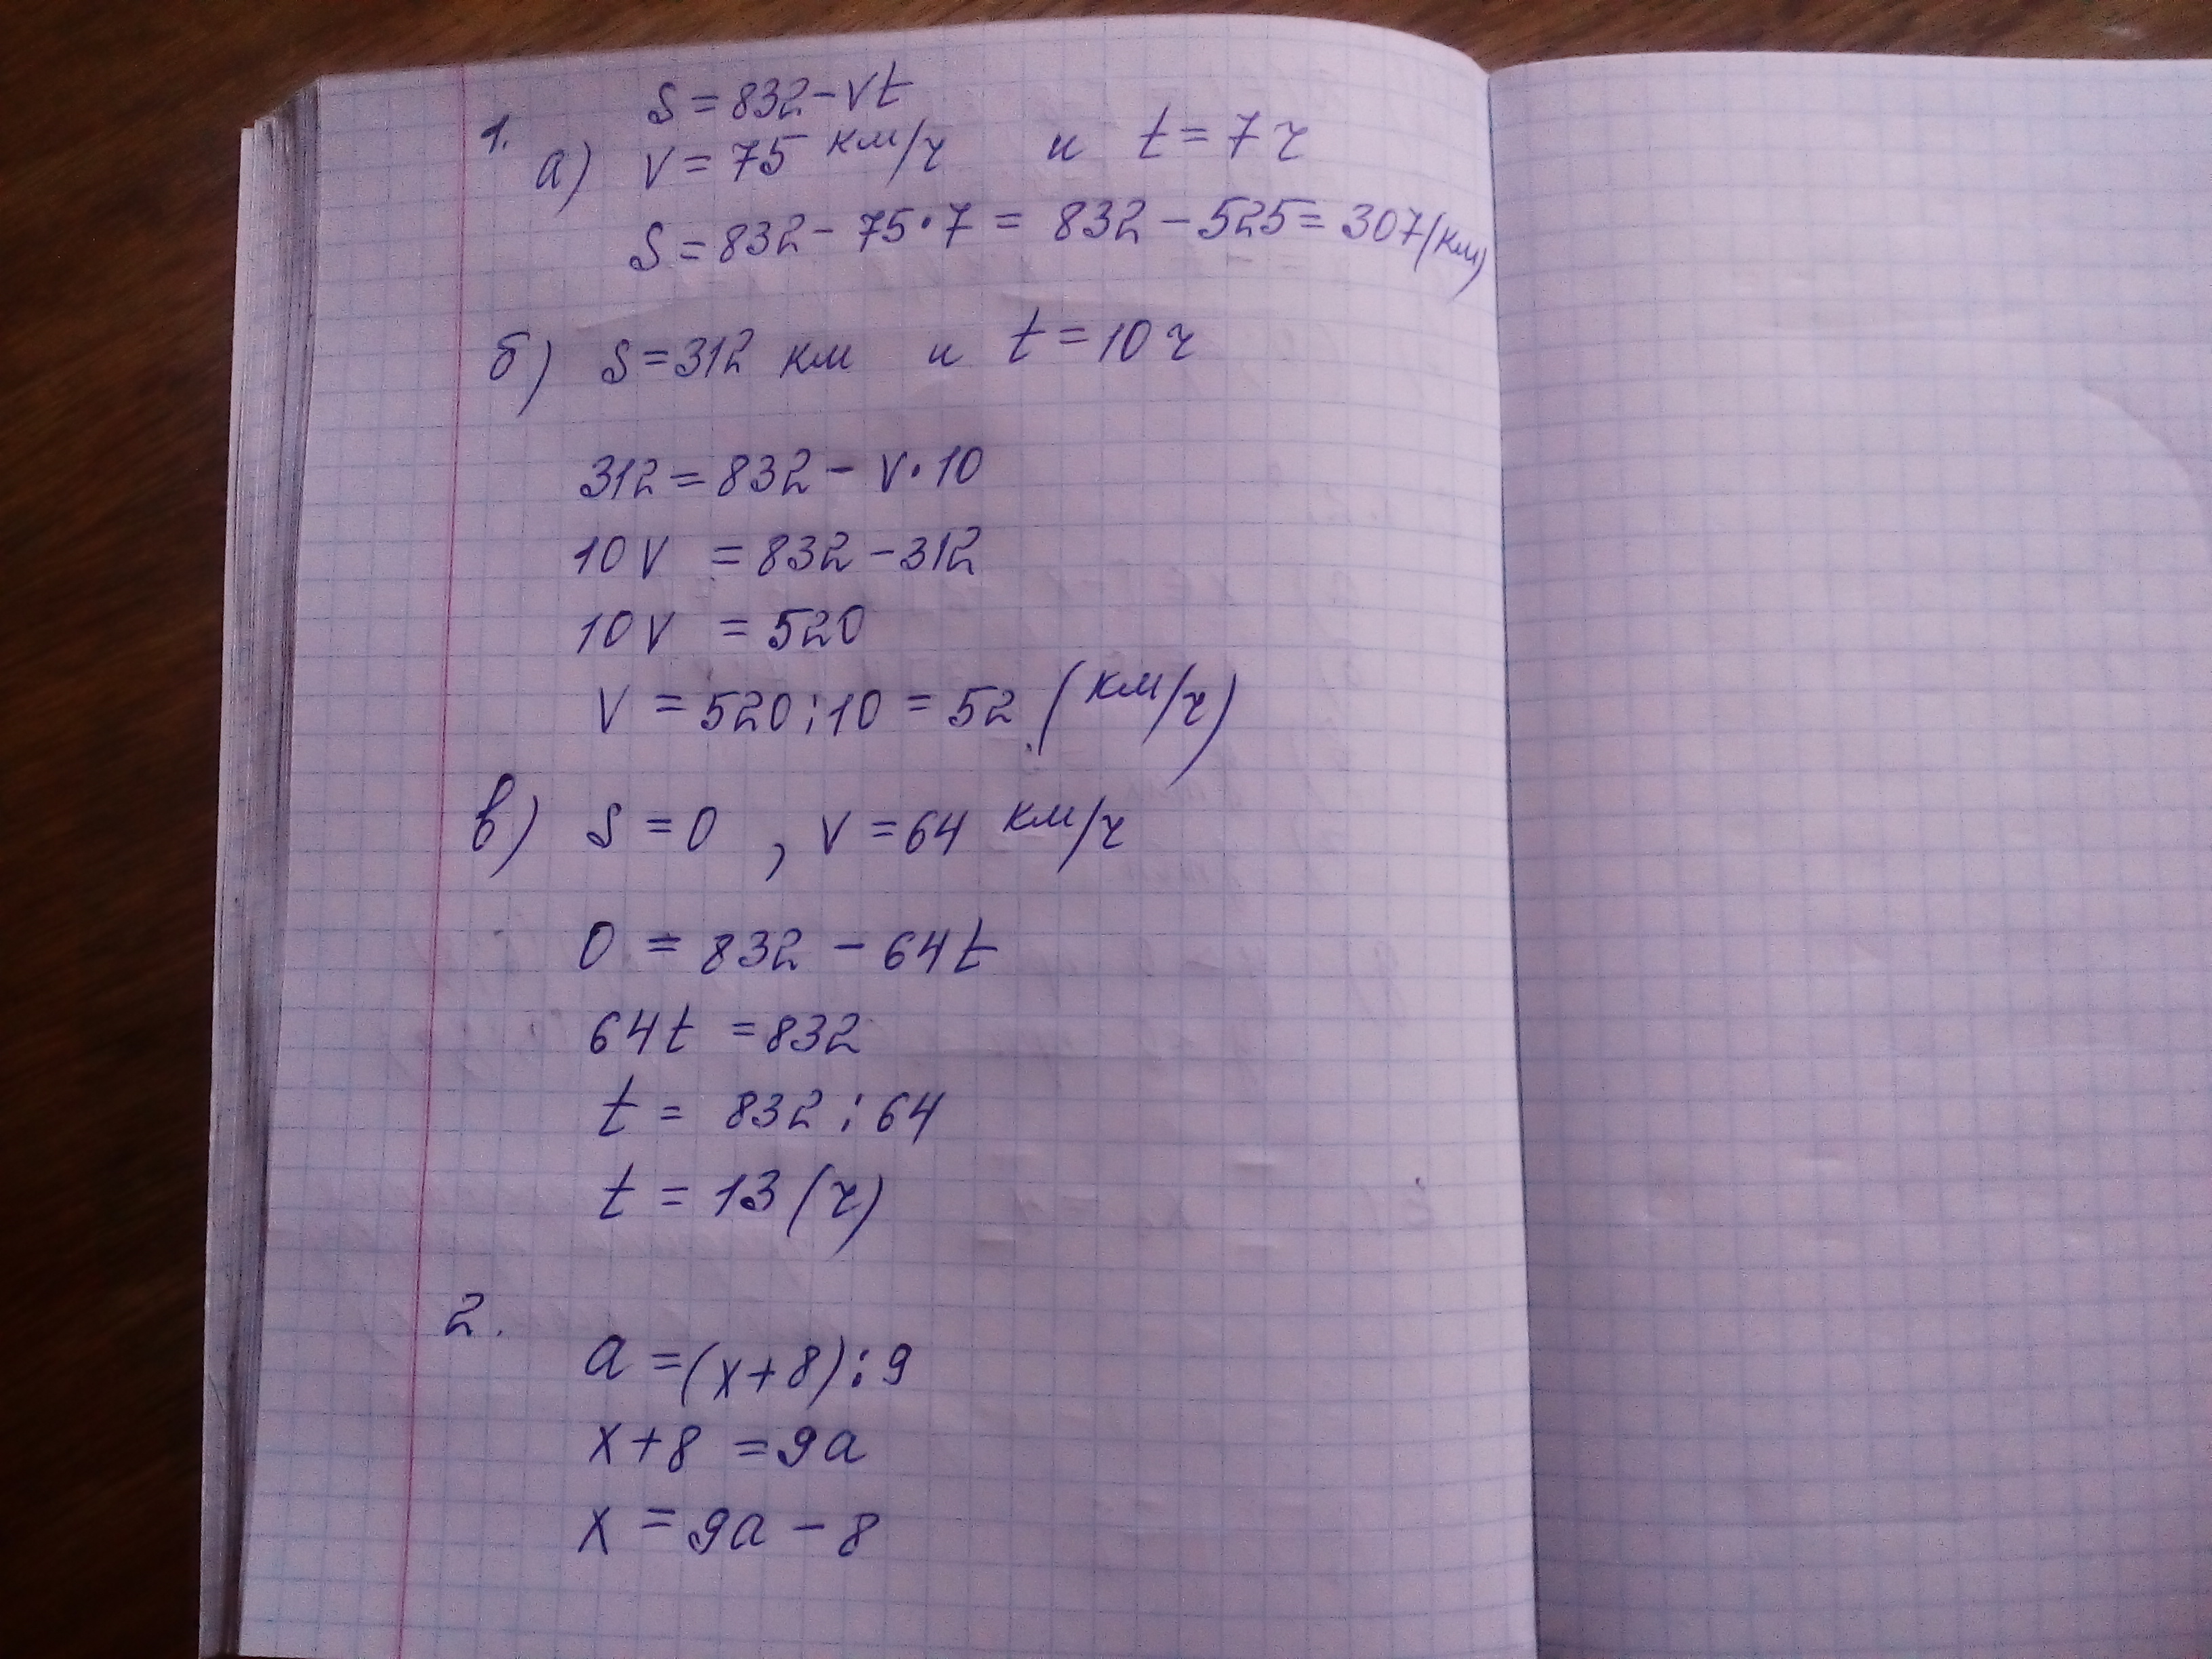 1. S = 832 - vt
а) v = 75 км/ч и t = 7 ч
S = 832 - 75 · 7 = 832 - 525 = 307 (км)
б) S = 312 км и t = 10 ч
312 = 832 - v · 10
10v = 832 - 312
10v = 520
v = 520 : 10 = 52 (км/ч)
в) S = 0 , v = 64 км/ч
0 = 832 - 64t
64t = 832
t = 832 : 64
t = 13 (ч)
2.
a = (x + 8) : 9
x + 8 = 9a
x = 9a - 8